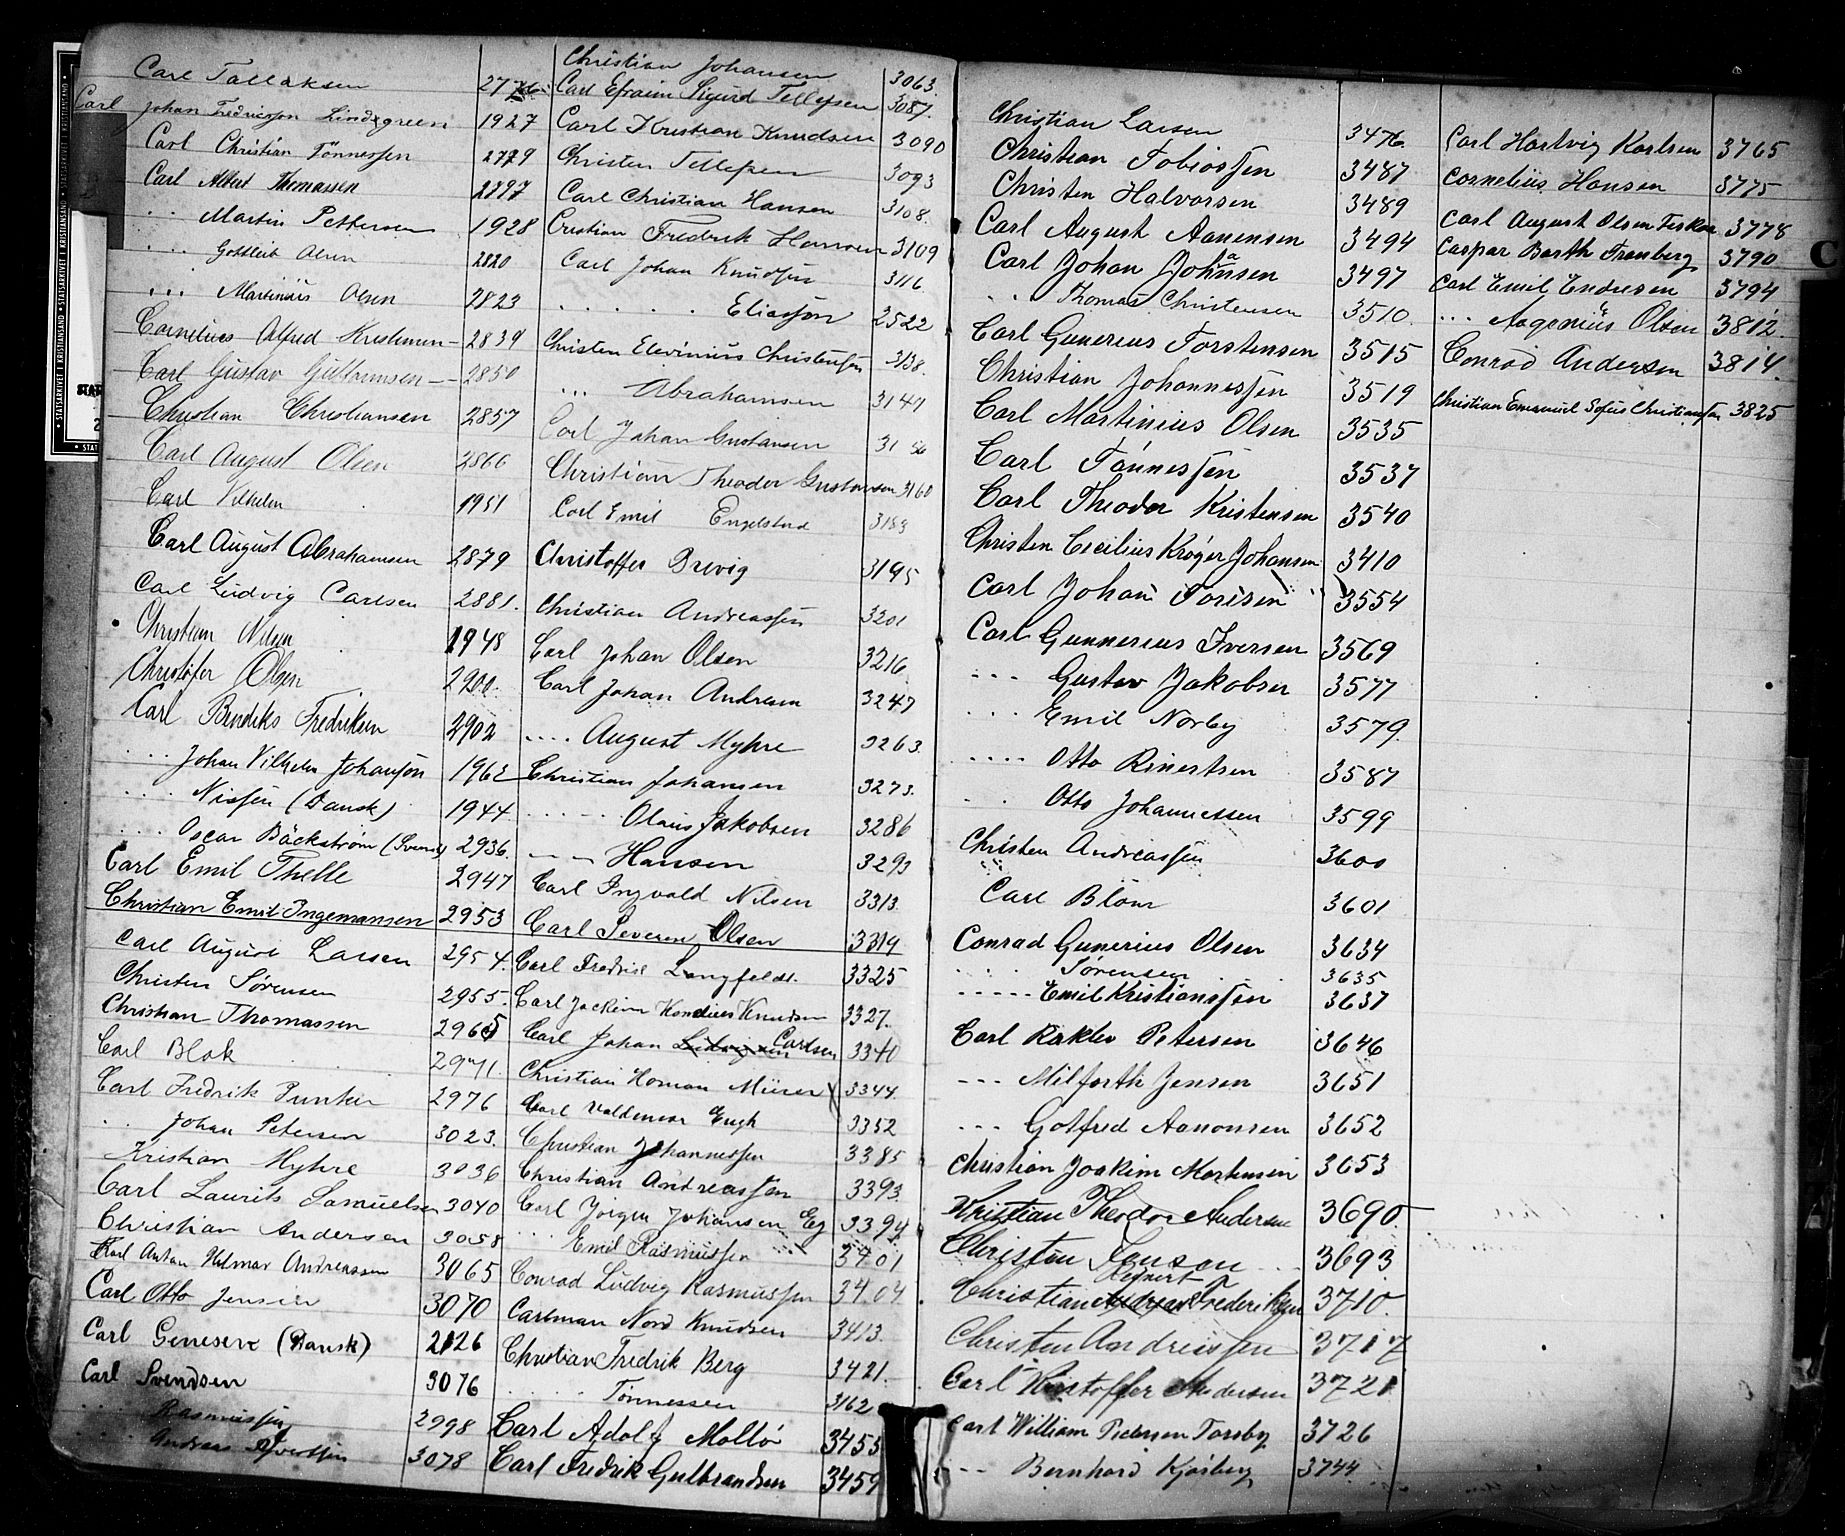 Carl Tallaksen 2776
Carl Johan Fredriksson Lindegreen 1927
Carl Christian Tönnessen 2779
Carl Albert Thomassen 2797
. . Martin Pettersen 1928
. . Gottlieb Olsen 2820
. . . Martinius Olsen 2823
Cornelius Alfred 2839
Carl Gustav 2850
Christian Christiansen 2857
Carl August Olsen 2866
Carl Vilhelm 1951
Carl August Abrahamsen 2879
Carl Ludvig Carlsen 2881.
Christian Nilsen 1948
Christofer Olsen 2900.
Carl Bendiks Fredriksen 2902
. . . . Johan Vilhelm Johansson 1962
. . . . Nissen (Dansk) 1944
. . . . Oscar Bäckström 2936.
Carl Emil Thelle 2947
Christian Emil Ingemansen 2953
Carl August Larsen 2954.
Christen Sørensen 2955.
Christian Thomassen 2965
Carl Blok 2971.
Carl Fredrik Punker 2976
. . Johan Petersen 3023.
Kristian Myhre 3036
Carl Laurits Samuelsen 3040
Christian Andersen 3058
Karl Anton Hilmar Andreassen 3065
Carl Otto Jensen 3070
Carl (Dansk) 2126
Carl Svendsen 3076
. . . . Rasmussen 2998
. . . . Andreas 3078
Christian Johansen 3063.
Carl Efraim Sigurd Tellefsen 3087.
Carl Kristian Knudsen 3090
Christen Tellefsen 3093
Carl Christian Hansen 3108.
Cristian Fredrik Hansen 3109
Carl Johan Knudsen 3116
. . . . . . Eliasson 2522
Christen Elevinius Christensen 3138.
. . . Abrahamsen 3147
Carl Johan Gustavsen 3156
Christian Theodor Gustavsen 3160
Carl Emil Engelstad 3183
Christoffer Brevig 3195
Christian Andreassen 3201
Carl Johan Olsen 3216
Carl Johan Andresen 3247
. . . . August Myhre 3263.
Christian Johansen 3273.
. . . . . Olaus Jakobsen 3286
- - - Hansen 3293
Carl Ingvald Nilsen 3313.
Carl Severin Olsen 3319
Carl Fredrik Langfeldt. 3325
Carl Jackim Knudsen 3327.
Carl Johan Ludvigsen Carlsen 3340
Christian Homan 3344.
Carl Valdemar Eugh 3352
Christian Johannessen 3385
Christian Andreassen 3393.
Carl Jörgen Johansen Eg 3394
. . . Emil Rasmussen 3401
Conrad Ludvig Rasmussen 3404.
Carlman Nord Knudsen 3413.
Christian Fredrik Berg 3421.
. . . . . Tönnessen 3162
Carl Adolf Moltö 3455
Carl Fredrik Gulbrandsen 3459
Christian Larsen 3476
Christian Tobiassen 3487
Christen Halvorsen 3489
Carl August Aanensen 3494
Carl Johan Johansen 3497
. . Thomas Christensen 3510.
Carl Gunerius Torstensen 3515
Christian Johannessen 3519
Carl Martinius Olsen 3535
Carl Tönnessen 3537
Carl Theodor Kristensen 3540
Christen Cecilius Kröger Johansen 3410
Carl Johan Torisen 3554
Carl Gunnerius Iversen 3569
- - - Gustav Jakobsen 3577
. . . Emil Norby 3579.
. . . . Otto Rinertsen 3587
. . Otto Johannessen 3599
Christen Andreassen 3600
Carl Blöm 3601
Conrad Gunerius Olsen 3634
. . . Sørensen 3635
- - - - - Emil Kristianssen 3637
Carl Petersen 3646
- - - Milforth Jensen 3651
- - - Gotfred Aanonsen 3652
Christian Joakim Mortensen 3653
Kristian Theodor Andersen 3690.
Christen Jensen 3693
Christian Reinert Frederiksen 3710.
Christen Andreassen 3717
Carl Kristoffer Andersen 3721
Carl William Pedersen Torsby 3726
- - - Bernhard Kjosberg 3744.
Carl Hartvig Karlsen 3765
Cornelius Hansen 3775
Carl August Olsen 3778
Caspar Barth Tranberg 3790
Carl Emil Endresen 3794
. . . Olsen 3812.
Conrad Andersen 3814.
Christian Emanuel Sofus Christiansen 3825
C